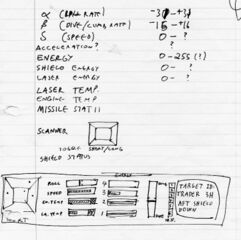 α (ROLL RATE) -31 → +31
β (DIVE/CLIMB RATE) -16 → +16
S (SPEED) 0 – ?
ACCELERATION?
ENERGY 0 – 255 (?)
SHIELD ENERGY 0 – ?
LASER ENERGY 0 – ?
LASER TEMP.
ENGINE TEMP
MISSILE STATII
SCANNER
TOGGLE SHORT/LONG
SHIELD STATUS
ROLL
SPEED
TARGET ID-
TRADER 3H
AFT SHIELD
DOWN